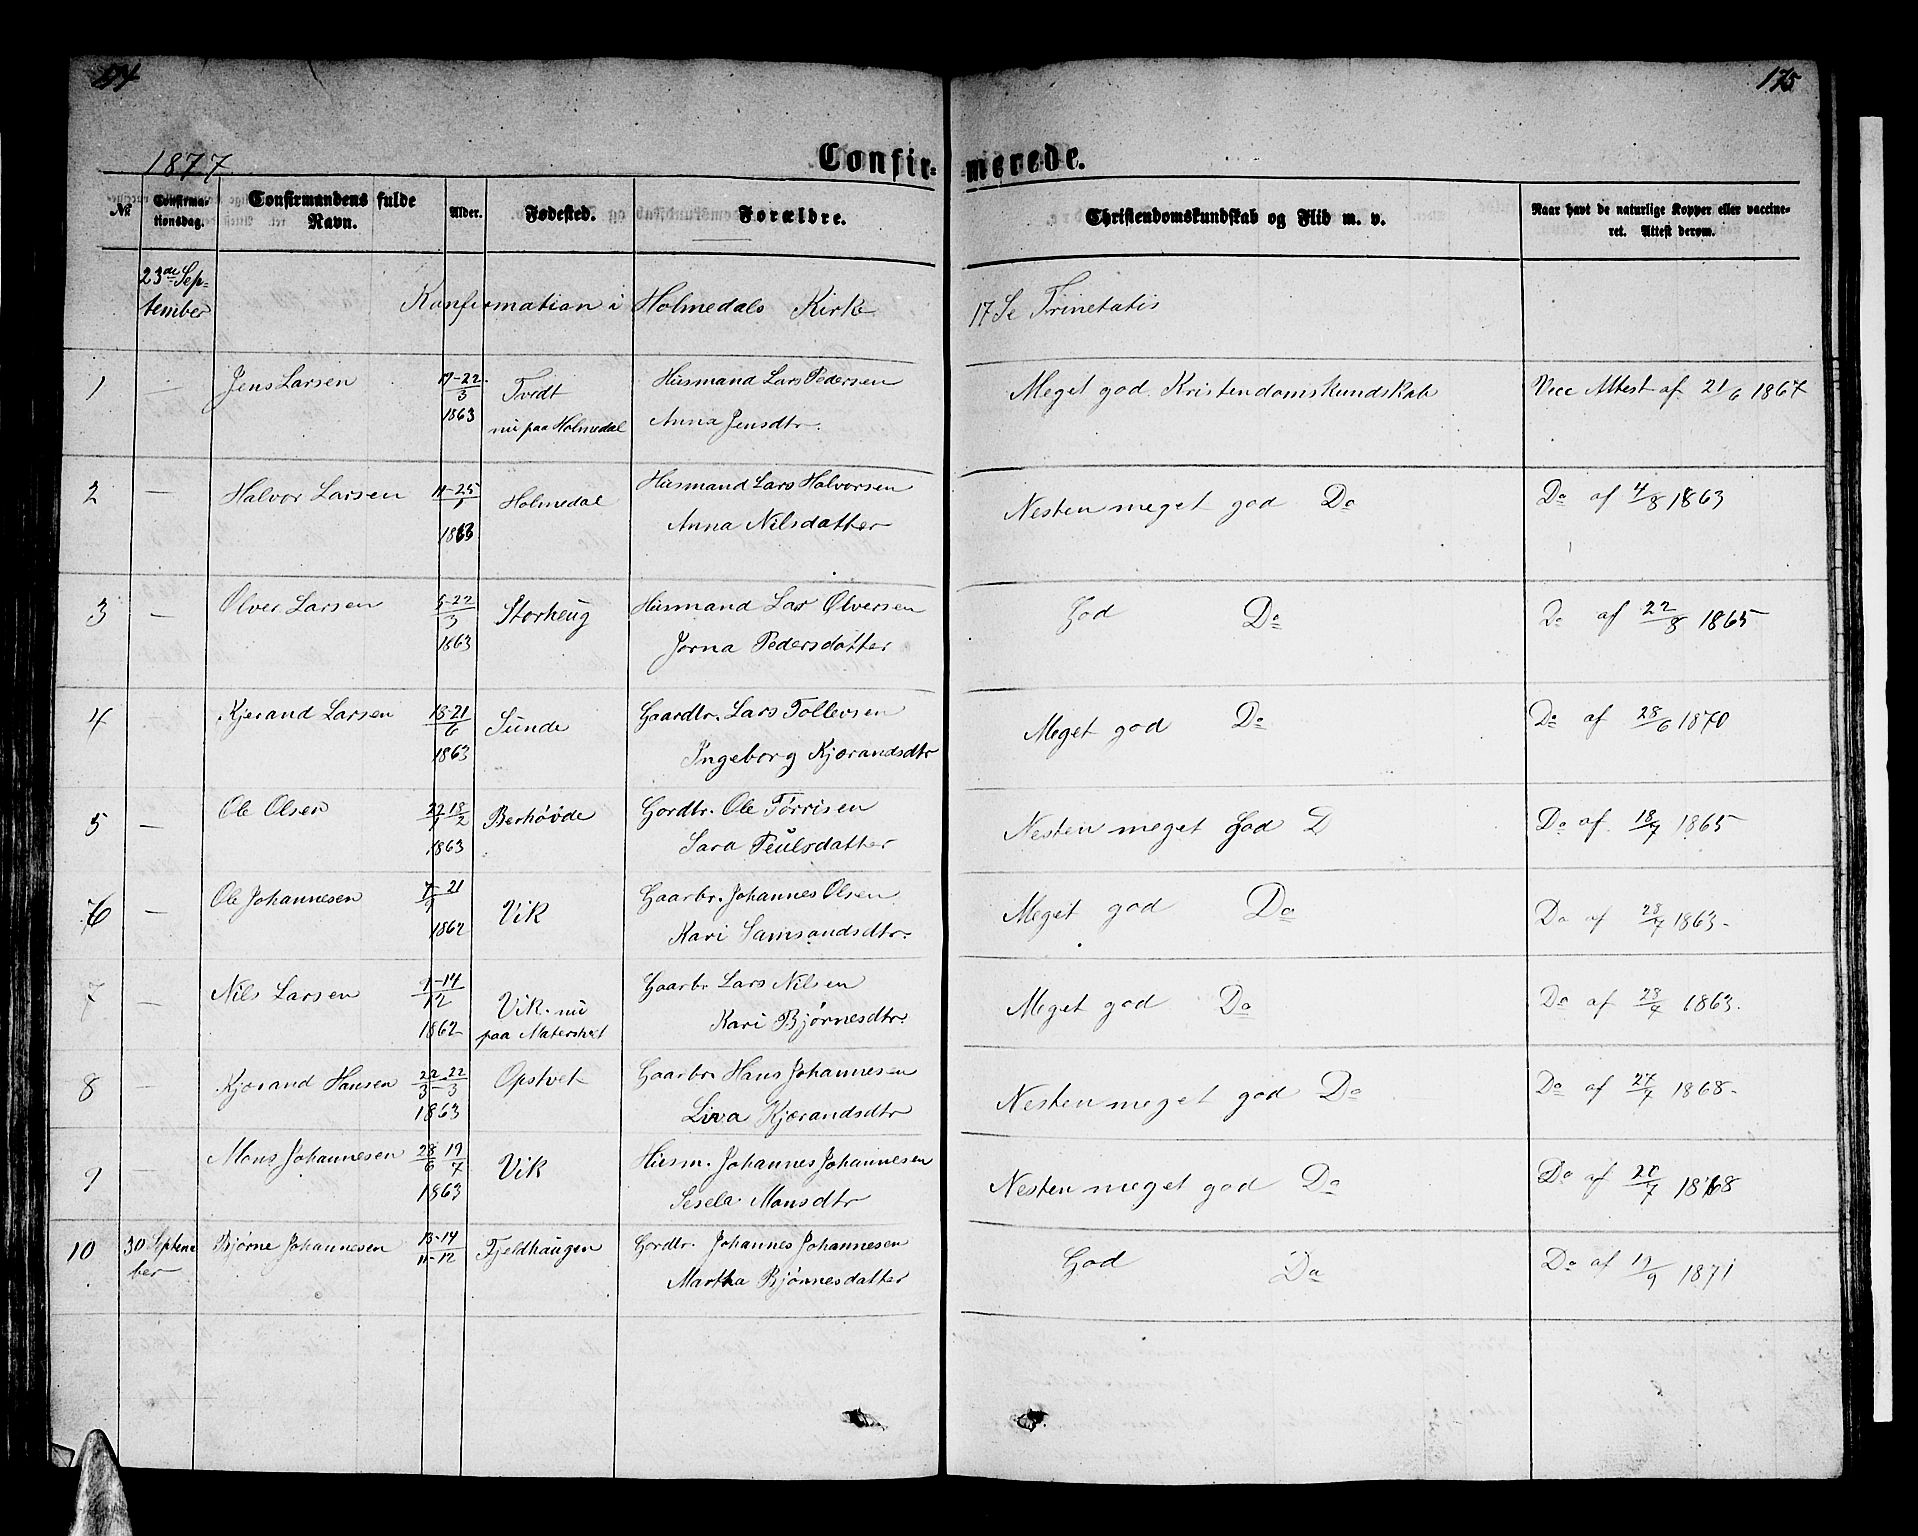 174
175
1877
Confir-
merede.
No.
Confirma-
tionsdag.
Confirmandens fulde
Navn.
Alder.
Fødested.
Forældre.
Christendomskundskab og Flid m. v.
Naar havt de naturlige Kopper eller vaccine-
ret. Attest derom.
23de Sep-
tember
Konfirmation i Holmedals Kirke
17 Se Trinetatis
1 — Jens Larsen 17-22/3 Tvedt Husmand Lars Pedersen Meget god Kristendomskundskab Vacc Attest af 21/6 1867
1863 nu paa Holmedal Anna Jensdtr.
2 — Halvor Larsen 11-25/1 Holmedal Husmand Lars Halvorsen Nesten meget god Do Do af 4/8 1863
1863 Anna Nilsdatter
3 — Olver Larsen 5-22/3 Storheug Husmand Lar Olversen God Do Do af 22/8 1865
1863 Jorna Pedersdatter
4 — Kjerand Larsen 13-21/6 Sunde Gaardtr. Lars Tollevsen Meget god Do Do af 28/6 1870
1863 Ingeborg Kjærandsdtr
5 — Ole Olsen 22/1 18/2 Berhøvde Gordtr. Ole Tørrisen Nesten meget god D Do af 18/7 1865
1863 Sara Peulsdatter
6 — Ole Johannesen 7-21/9 Vik Gaarbr. Johannes Olsen Meget god Do Do af 28/7 1863-
1862 Kari Samsandsdtr.
7 — Nils Larsen 1-14/12 Vik. nu Gaarbr Lars Nilsen Meget god Do Do af 28/7 1863.
1862 paa Matershet Kari Bjørnesdtr.
8 — Kjærand Hansen 22/3-22/3 Opstvet Gaarbr Hans Johannesen Nesten meget god Do Do af 27/7 1868-
1863 Liva Kjærandsdtr
9 — Mons Johannesen 28/6 19/7 Vik Husm. Johannes Johannesen Nesten meget god Do Do af 20/7 1868
1863 Sesela Monsdtr
10 30 Septem Bjørne Johannesen 13-14/11-12 Fjeldhaugen Gordtr. Johannes Johannesen God Do Do af 19/9 1871
ber Martha Bjørnesdatter